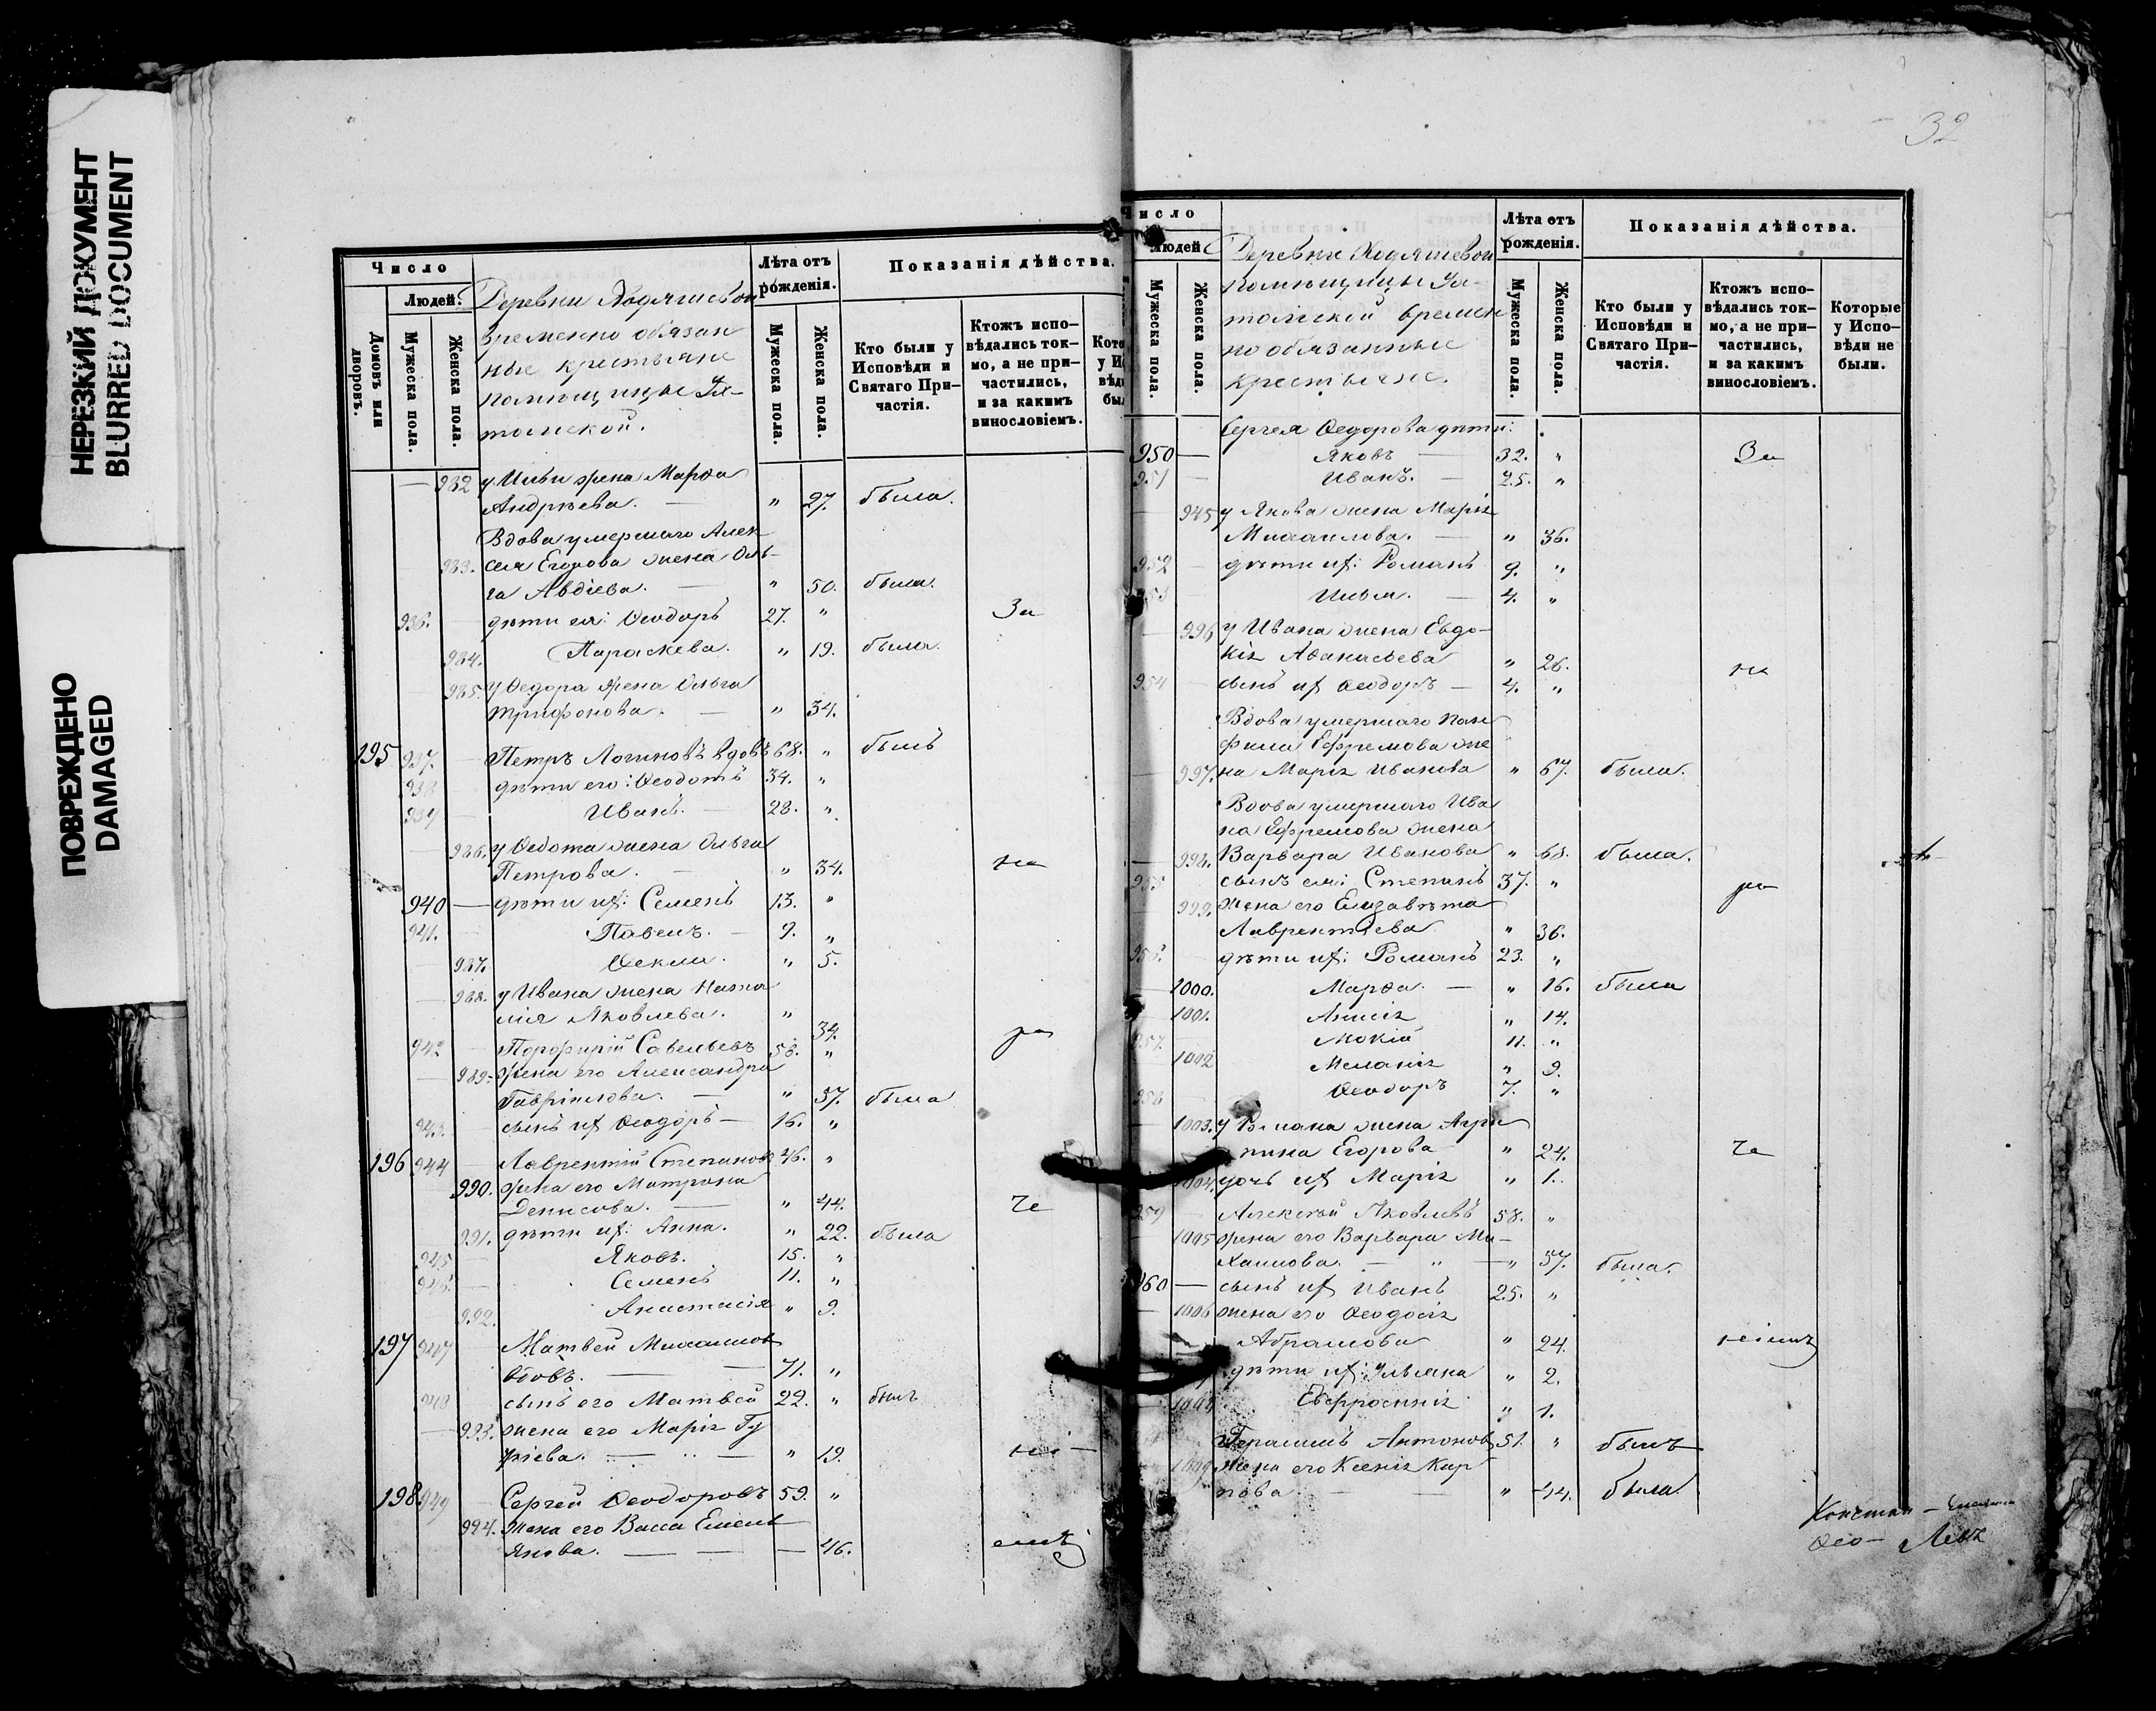 НЕРЕЗКИЙ ДОКУМЕНТ
BLURRED DOCUMENT
ПОВРЕЖДЕНО
DAMAGED
Число
Людей.
Домовъ или дворовъ.
Мужеска пола.
Женска пола.
Деревни Ходяшевой
временно обязан
ные крестьяне
помѣщицы
Лѣта отъ рожденія.
Мужеска пола.
Женска пола.
Показанія дѣйства.
Кто были у Исповѣди и Святаго Причастія.
Ктожъ испо-
вѣдались ток-
мо, а не при-
частились,
и за какимъ
винословіемъ.
982 у Ильи жена Марѳа
Андреева. — " 27. была.
Вдова умершаго Алек
983. сѣя Егорова жена Оль-
га Авдіева. — " 50. была.
936. дѣти ея: Ѳеодоръ 27. " За
984. Параскева. " 19. была.
985. у Ѳедора жена Ольга
Трифонова. — " 34.
195 937. Петръ Логиновъ вдовъ 68. " былъ
938 дѣти его: Ѳеодотъ 34. "
939 Иванъ. — 28. "
986. у Ѳедота жена Ольга
Петрова. — " 34. не
940 — дѣти их: Семенъ 13. "
941. Павелъ. — 9. "
987. Ѳекла. " 5.
988. у Ивана жена Ната
лія Яковлева. " 34.
942 Порфирій Савельевъ 58. " ра
989. жена его Александра
Гавріилова. — " 57. была
943. сынъ их Ѳеодоръ — 16. "
196 944 Лаврентій Степановъ 46. "
990. жена его Матрона
Денисова. — " 44. че
991. дѣти их: Анна. " 22. была
945 Яковъ. 15. "
946. Семенъ 11. "
992. Анастасія " 9.
197 947 Матвей Михаиловъ
вдовъ. — 71. "
948 сынъ его Матвей 22. " былъ
993. жена его Марія Гу
ріева. — " 19.
198 949 Сергей Ѳеодоровъ 59. "
994. жена его Васса Емель
янова. — — — 46.
32
Число
Людей
Мужеска пола.
Женска пола.
Деревни Ходяшевой
помѣщицы
времен
но обязанные
крестьяне.
Лѣта отъ рожденія.
Мужеска пола.
Женска пола.
Показанія дѣйства.
Кто были у Исповѣди и Святаго Причастія.
Ктожъ испо-
вѣдались ток-
мо, а не при-
частились,
и за какимъ
винословіемъ.
Которые у Испо-
вѣди не были.
Сергея Ѳедорова дѣти:
950 — Яковъ — 32. " За
951 — Иванъ. — 25. "
у Якова жена Марія
Михаилова. — " 36.
952 дѣти их: Романъ 9. "
953 Илья. — 4. "
996 у Ивана жена Евдо-
кія Аѳанасьева " 26. не
954 сынъ их Ѳеодоръ — 4. "
Вдова умершаго Пан
фила Ефремова же
997. на Марія Иванова " 67. была.
Вдова умершаго Ива
на Ефремова жена
998. Варвара Иванова " 68. была.
955 сынъ ея: Степанъ 37. " ра
999. жена его Елизавета
Лаврентіева " 36.
дѣти их: Романъ 23. "
1000. Марѳа. — " 16. была
1001. Анисія " 14.
957. Мокій 11. "
1002 Меланія " 9.
958 Ѳеодоръ 7. "
1003. у Романа жена Агри
пина Егорова " 24. че
1004. дочь их Марія " 1.
959 Алексѣй Яковлевъ 58. "
1005 жена его Варвара Ми-
хаилова. — " — " 57. была.
960 — сынъ их Иванъ 25. "
1006 жена его Ѳеодосія
Абрамова " 24. ніемъ
дѣти их: Ульяна " 2.
1008 Евфросинія " 1.
Герасимъ Антоновъ 51. " былъ
1009 жена его Ксенія Кар
пова. — " 44. была.